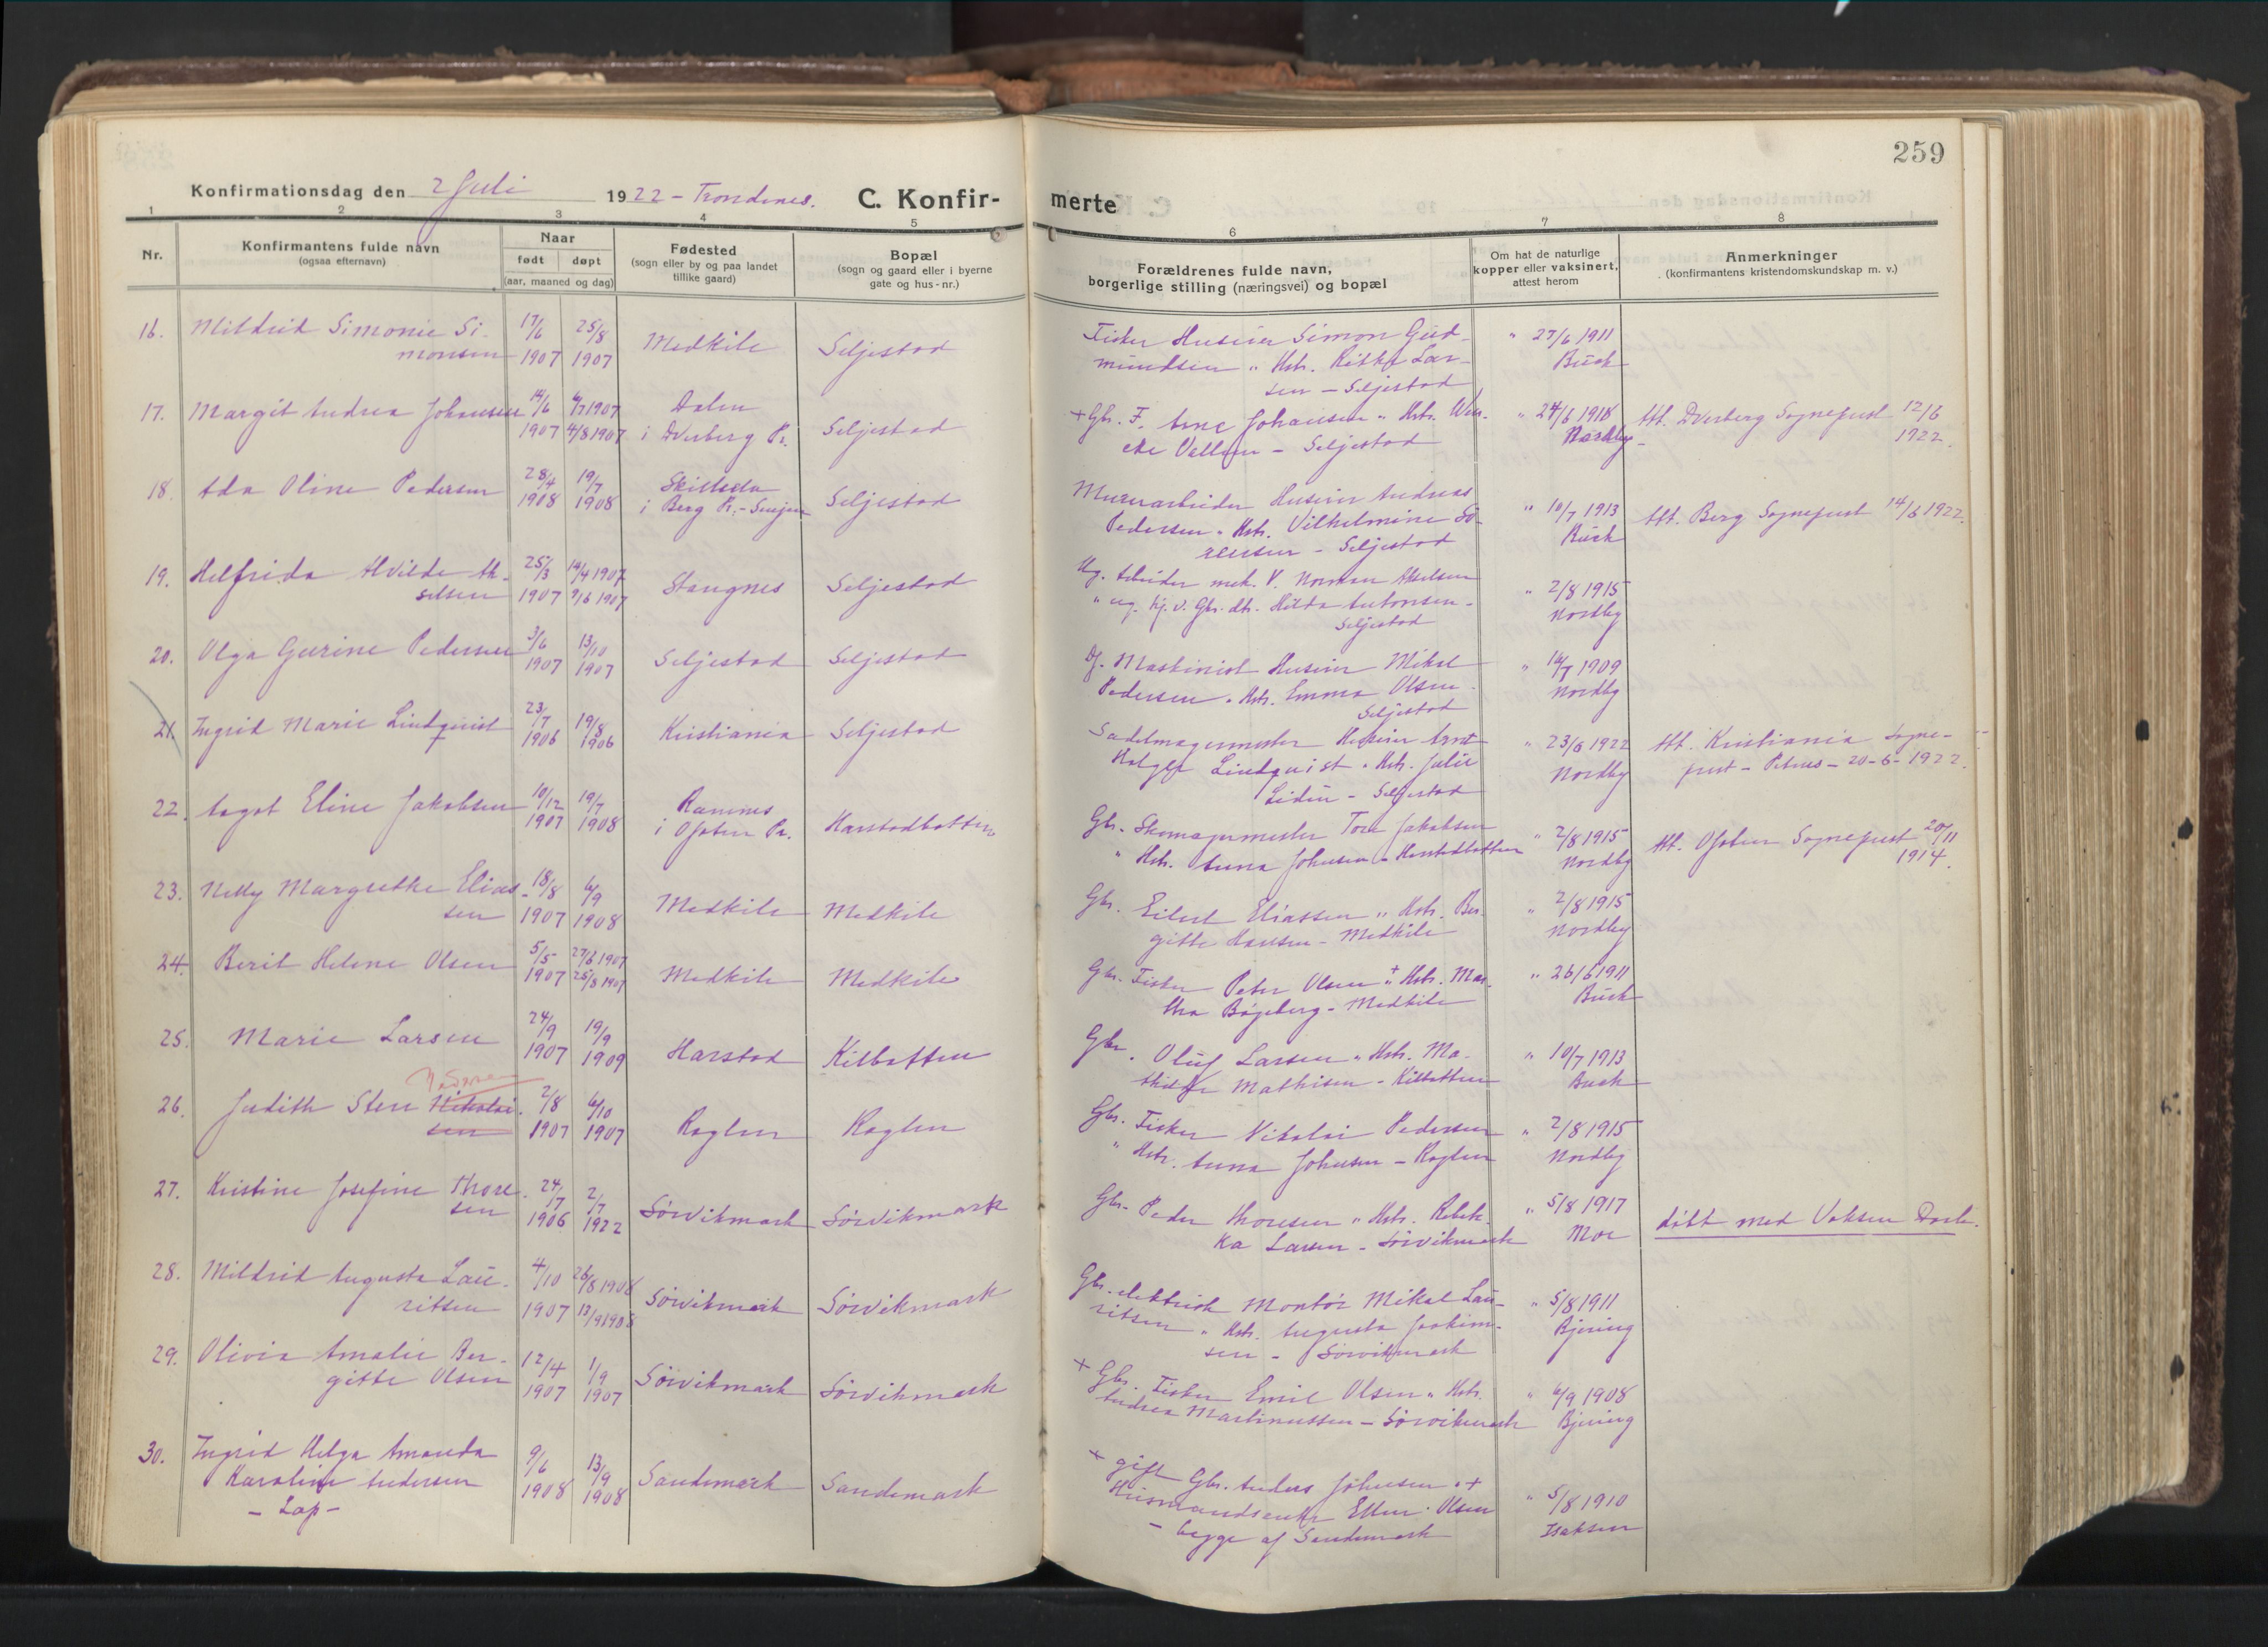 259
Konfirmationsdag den 2 Juli 1922 - Trondenes. C. Konfir-
merte
1 2 3 4 5 6 7 8
Nr.
Konfirmantens fulde navn
(ogsaa efternavn)
Naar
født døpt
(aar, maaned og dag)
Fødested
(sogn eller by og paa landet
tillike gaard)
Bopæl
(sogn og gaard eller i byerne
gate og hus-nr.)
Forældrenes fulde navn,
borgerlige stilling (næringsvei) og bopæl
Om hat de naturlige
kopper eller vaksinert,
attest herom
Anmerkninger
(konfirmantens kristendomskundskap m. v.)
16. Mildrid Simonie Si-
monsen
17/6 1907
25/8 1907
Medkile
Seljestad
Fisker Huseier Simon Gud-
mundsen " Hstr. Rikka Lar-
sen - Seljestad
" 27/6 1911
Buck
17. Margit Andrea Johansen
14/6 1907
4/7 1907
4/8 1907
Dalen
i Dverberg Pr.
Seljestad
+ Gbr. F. Arne Johansen " Hstr.
- Seljestad
" 24/6 1918
Nordby
Att. Dverberg Sogneprest 12/6
1922.
18. Ada Oline Pedersen
28/4 1908
19/7 1908
i Berg Pr. - Senjen
Seljestad
Murerarbeider Huseier Andreas
Pedersen " Hstr. Vilhelmine Sö-
rensen - Seljestad
" 10/7 1913
Buck
Att. Berg Sogneprest 14/6 1922.
19. Helfrida Alvilde Ak-
selsen
25/3 1907
14/4 1907
9/6 1907
Stangnes
Seljestad
Ug. Arbeider mek. V. Norman Akselsen
" ug. hj. v. Gbr. dtr. Hilda Antonsen -
Seljestad
" 2/8 1915
Nordby
20. Olga Gurine Pedersen
3/6 1907
13/10 1907
Seljestad
Seljestad
Maskinist Huseier Mikal
Pedersen " Hstr. Emma Olsen -
Seljestad
" 14/7 1909
Nordby
21. Ingrid Marie Lindquist
23/7 1906
19/8 1906
Kristiania
Seljestad
Sadelmagermester Huseier Arnt
Holger Lindquist " Hstr. Julie
Lidén - Seljestad
" 23/6 1922
Nordby
Att. Kristiania Sogne-
prest - Petrus - 20-6-1922.
22. Aagot Eline Jakobsen
10/12 1907
19/7 1908
Ramnes
i Ofoten Pr.
Harstadbotten
Gbr. Skomagermester Tore Jakobsen
" Hstr. Anna Johnsen - Harstadbotten
" 2/8 1915
Nordby
Att. Ofoten Sogneprest 20/11
1914.
23. Nelly Margrethe Elias-
sen
18/8 1907
6/9 1908
Medkile
Medkile
Gbr. Eilert Eliassen " Hstr. Ber-
gitte Hansen - Medkile
" 2/8 1915
Nordby
24. Berit Helene Olsen
5/5 1907
27/6 1907
25/8 1907
Medkile
Medkile
Gbr. Fisker Peter Olsen " + Hstr. Mar-
tha Bøgeberg - Medkile
" 26/6 1911
Buck
25. Marie Larsen
24/9 1907
19/9 1909
Harstad
Kilbotten
Gbr. Oluf Larsen " Hstr. Ma-
thilde Mathisen - Kilbotten
" 10/7 1913
Buck
26. Judith Sten Nikolai-
sen
2/8 1907
6/10 1907
Roglen
Roglen
Gbr. Fisker Nikolai Pedersen
" Hstr. Anna Johnsen - Roglen
" 2/8 1915
Nordby
27. Kristine Josefine Thore-
sen
24/7 1906
2/7 1922
Sörvikmark
Sörvikmark
Gbr. Peder Thoresen " Hstr. Rebek-
ka Larsen - Sörvikmark
" 5/8 1917
Moe
döbt med Voksen Daab.
28. Mildrid Augusta Lau-
ritsen
4/10 1907
26/8 1908
13/9 1908
Sörvikmark
Sörvikmark
Gbr. elektrisk Montör Mikal Lau-
ritsen " Hstr. Augusta Joakim-
sen - Sörvikmark
" 5/8 1911
Bjering
29. Olivia Amalie Ber-
gitte Olsen
12/4 1907
1/9 1907
Sörvikmark
Sörvikmark
+ Gbr. Fisker Emil Olsen " Hstr.
Andrea Martinussen - Sörvikmark
" 6/9 1908
Bjering
30. Ingrid Helga Amanda
Karoline Andersen
- Lap -
9/6 1908
13/9 1908
Sandemark
Sandemark
+ gift Gbr. Anders Johnsen " +
Husmandsenke Ellen Olsen
- begge af Sandemark
" 5/8 1910
Isaksen